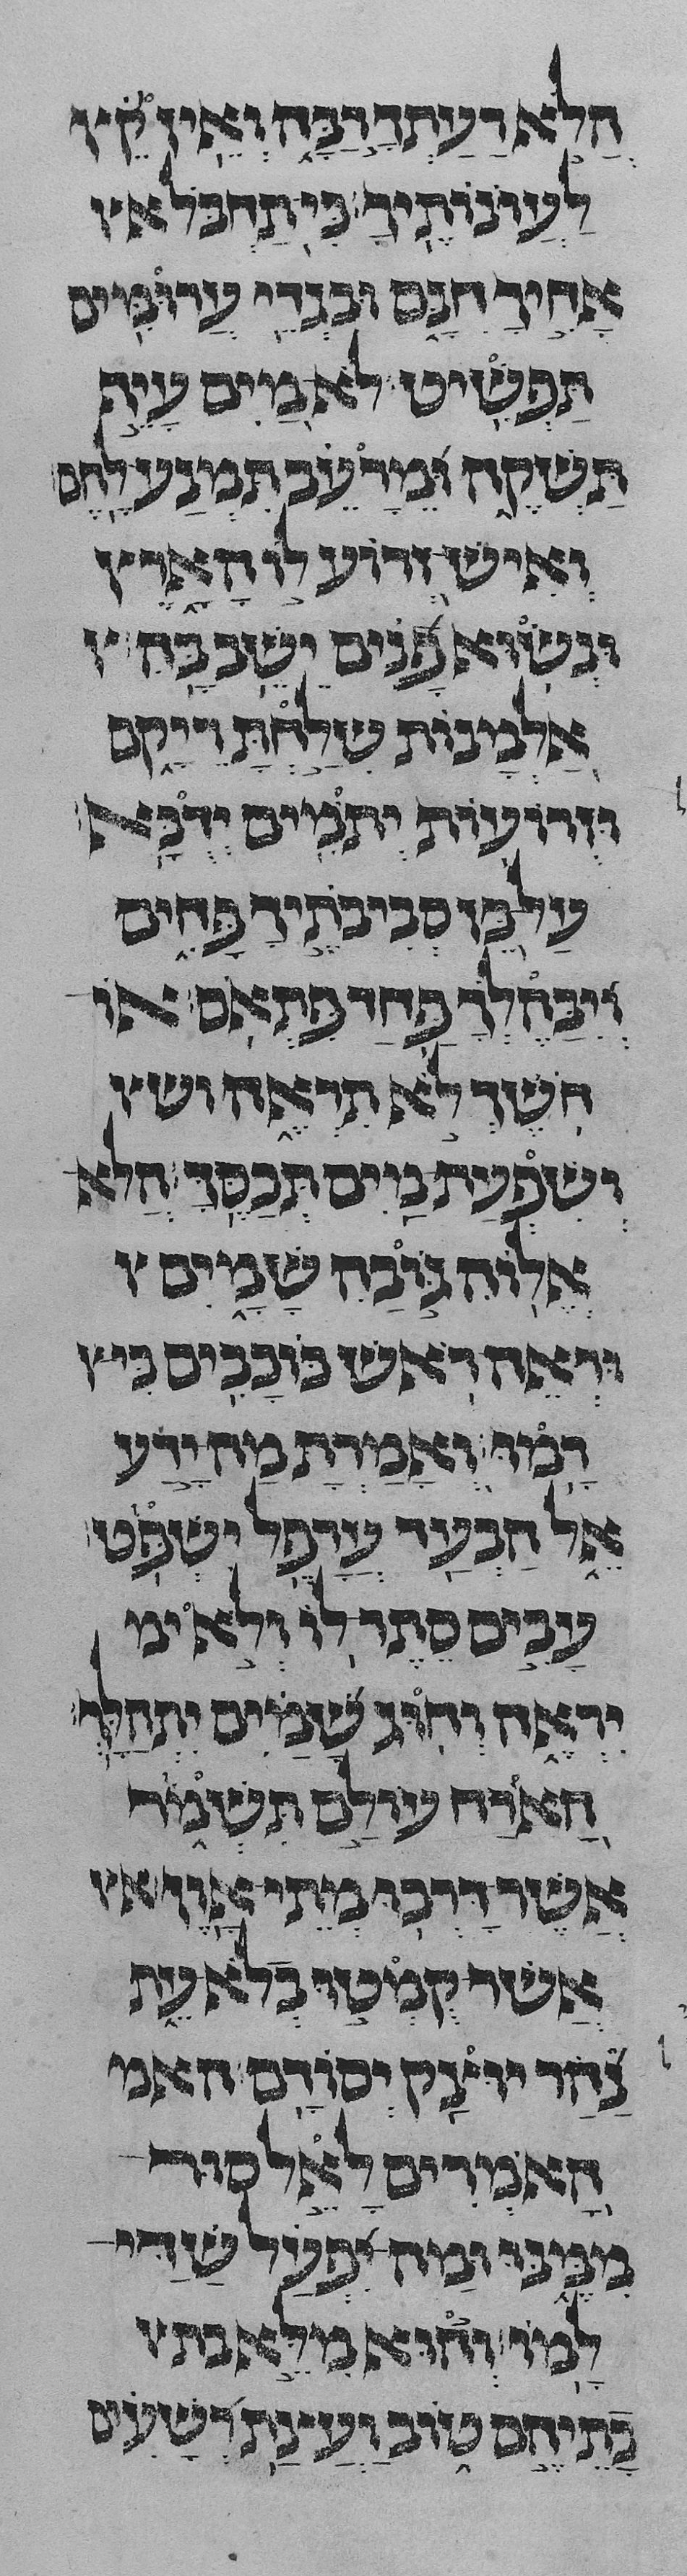 הֲלֹא רָעָתְךָ רַבָּה וְאֵין קֵץ
לַעֲוֹנוֹתֶיךָ׃ כִּי תַחְבֹּל א
אַחֶיךָ חִנָּם וּבִגְדֵי עֲרוּמִּים
תַּפְשִׁיט׃ לֹא מַיִם עָיֵף
תַּשְׁקֶה וּמֵרָעֵב תִּמְנַע לָחֶם׃
וְאִישׁ זְרוֹעַ לוֹ הָאָרֶץ
וּנְשׂוּא פָנִים יֵשֶׁב בָּהּ׃
אַלְמָנוֹת שִׁלַּחְתָּ רֵיקָם
וּזְרוֹעוֹת יְתֹמִים יְדֻכָּא׃
עַל כֵּן סְבִיבֹתֶיךָ פַחִים
וִיבַהֶלְךָ פַּחַד פִּתְאֹם׃ אוֹ
חֹשֶׁךְ לֹא תִרְאֶה וש
וְשִׁפְעַת מַיִם תְּכַסֶּךָּ׃ הֲלֹא
אֱלוֹהַּ גּוֹבַהּ שָׁמָיִם
וּרְאֵה רֹאשׁ כּוֹכָבִים כִּי
רָמּוּ׃ וְאָמַרְתָּ מַה יָּדַע
אֵל הַבְעַד עֲרָפֶל יִשְׁפּוֹט׃
עָבִים סֵתֶר לוֹ וְלֹא ימ
יִרְאֶה וְחוּג שָׁמַיִם יִתְהַלָּךְ׃
הַאֹרַח עוֹלָם תִּשְׁמֹר
אֲשֶׁר דָּרְכוּ מְתֵי אָוֶן׃ א
אֲשֶׁר קֻמְּטוּ בְלֹא עֵת
נָהָר יוּצַק יְסוֹדָם׃ האמ
הָאֹמְרִים לָאֵל סוּר
מִמֶּנּוּ וּמַה יִּפְעַל שַׁדַּי
לָמוֹ׃ וְהוּא מִלֵּא בת
בָתֵּיהֶם טוֹב וַעֲצַת רְשָׁעִים